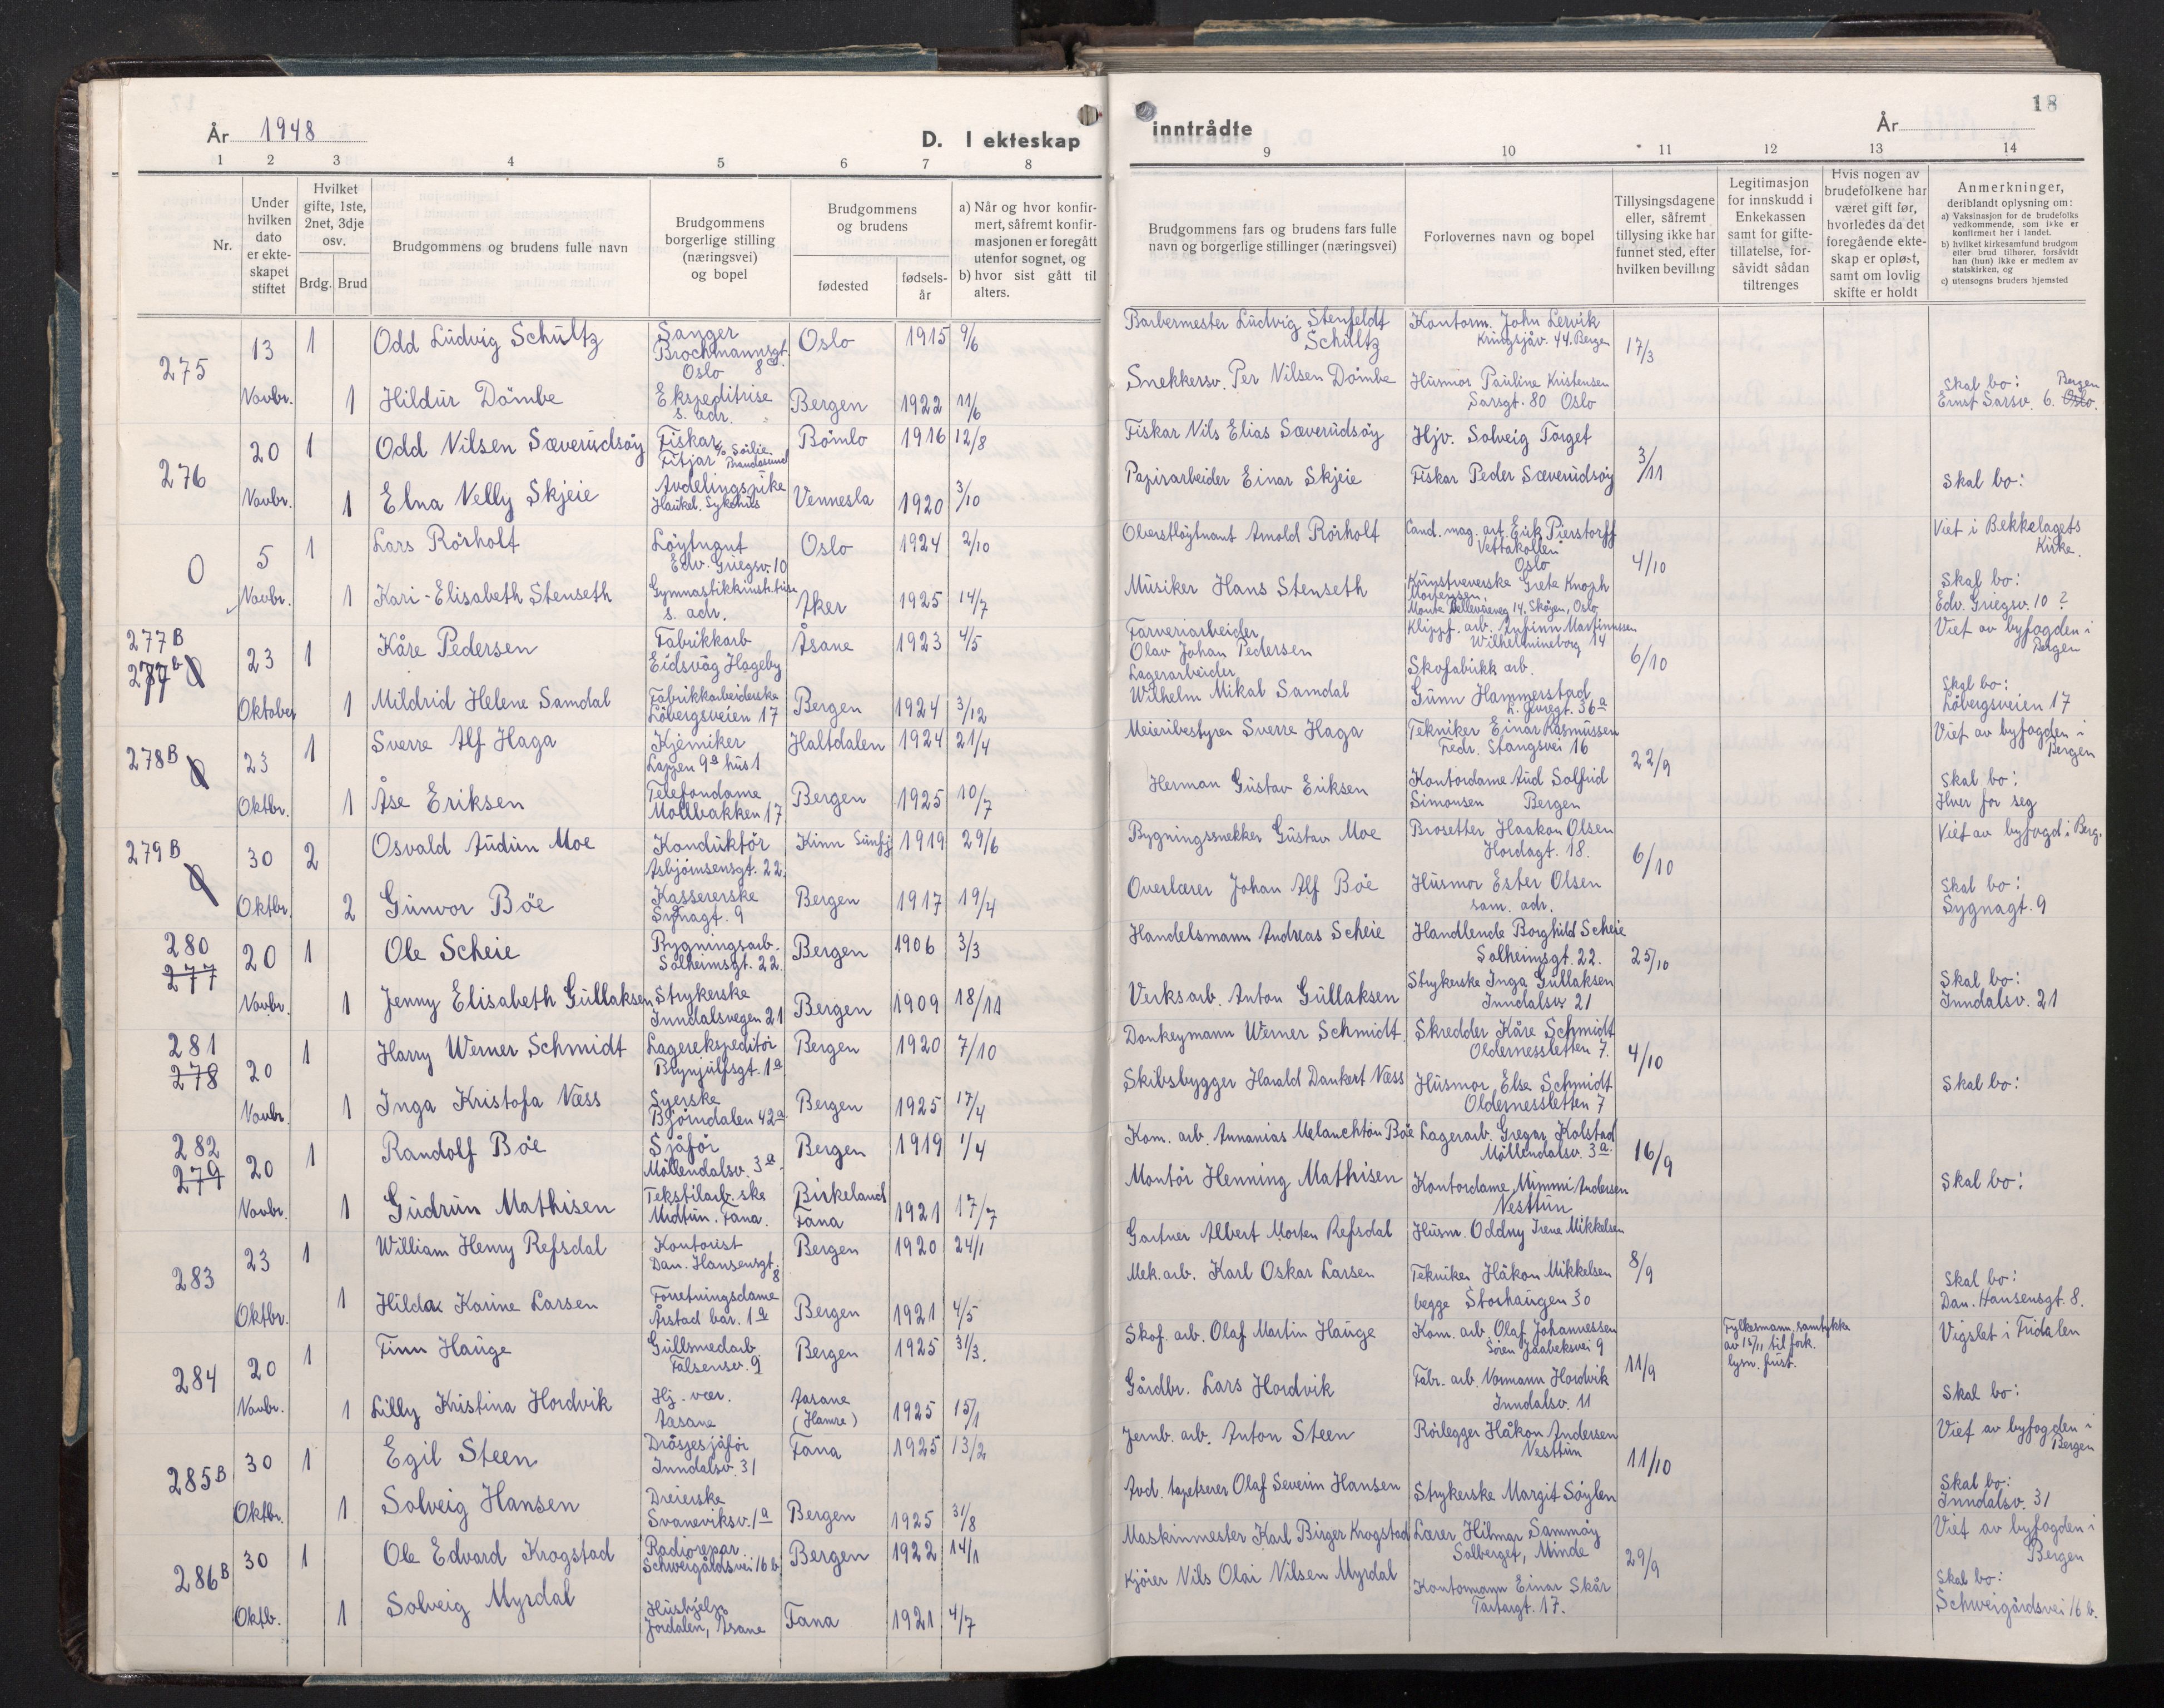 År 1948
D. I ekteskap
inntrådte
År
18
1 2 3 4 5 6 7 8
9 10 11 12 13 14
Nr.
Under hvilken dato er ekteskapet stiftet
Hvilket gifte, 1ste, 2net, 3dje osv.
Brdg. Brud
Brudgommens og brudens fulle navn
Brudgommens borgerlige stilling (næringsvei) og bopel
Brudgommens og brudens
fødested
fødselsår
a) Når og hvor konfirmert, såfremt konfirmasjonen er foregått utenfor sognet, og
b) hvor sist gått til alters.
Brudgommens fars og brudens fars fulle navn og borgerlige stillinger (næringsvei)
Forlovernes navn og bopel
Tillysingsdagene eller, såfremt tillysing ikke har funnet sted, efter hvilken bevilling
Legitimasjon for innskudd i Enkekassen samt for giftetillatelse, forsåvidt sådan tiltrenges
Hvis nogen av brudefolkene har været gift før, hvorledes da det foregående ekteskap er opløst, samt om lovlig skifte er holdt
Anmerkninger, deriblandt oplysning om:
a) Vaksinasjon for de brudefolks vedkommende, som ikke er konfirmert her i landet.
b) hvilket kirkesamfund brudgom eller brud tilhører, forsåvidt han (hun) ikke er medlem av statskirken, og
c) utensogns bruders hjemsted
275 13 1 Odd Ludvig Schultz Sanger Brochmannsgt. 8 Oslo Oslo 1915 9/6 Barbermester Ludvig Stenfeldt Schultz Kontorm. John Lervik Kringsjåv. 44. Bergen 17/3
Novbr. 1 Hildur Dömbe Ekspeditrise s. adr. Bergen 1922 11/6 Snekkersv. Per Nilsen Dömbe Husmor Pauline Kristensen Sarsgt. 80 Oslo Skal bo: Ernst Sarsv. 6. Oslo. Bergen
276 20 1 Odd Nilsen Sæverudsöy Fiskar Fitjar Bömlo 1916 12/8 Fiskar Nils Elias Sæverudsöy Hjv. Solveig Torget 3/11
Novbr. 1 Elna Nelly Skjeie Avdelingspike Haukel. Sykehus Vennesla 1920 3/10 Papirarbeider Einar Skjeie Fiskar Peder Sæverudsöy Skal bo:
0 5 1 Lars Rörholt Löytnant Edv. Griegsv. 10 Oslo 1924 2/10 Oberstlöytnant Arnold Rörholt Cand. mag. art. Eirik Pierstorff Vettakollen Oslo 4/10 Viet i Bekkelagets Kirke.
Novbr. 1 Kari-Elisabeth Stenseth s. adr. Aker 1925 14/7 Musiker Hans Stenseth Kunstveverske Grete Knoph Mortensen. 14, Sköyen, Oslo Skal bo: Edv. Griegsv. 10 ?
277 B 277 b 0 23 1 Kåre Pedersen Fabrikkarb. Eidsvåg Hageby Åsane 1923 4/5 Farveriarbeider Olav Johan Pedersen Klippf. arb. Arfinn Martinussen Wilhelmineborg 14 6/10 Viet av byfogden i Bergen
Oktober 1 Mildrid Helene Samdal Fabrikkarbeiderske Löbergsveien 17 Bergen 1924 3/12 Lagerarbeider Wilhelm Mikal Samdal Skofabrikk arb. Gunn Hammerstad 36a Skal bo: Löbergsveien 17
278 B 0 23 1 Sverre Alf Haga Kjemiker Lappen 9a hus 1 Haltdalen 1924 21/4 Meieribestyrer Sverre Haga Tekniker Einar Rasmussen Fredr. Stangsvei 16 22/9 Viet av byfogden i Bergen
Oktbr. 1 Åse Eriksen Telefondame Mollbakken 17 Bergen 1925 10/7 Herman Gustav Eriksen Kontordame Aud Solfrid Simonsen Bergen Skal bo: Hver for seg
279 B 0 30 2 Osvald Audun Moe Konduktör Asbjörnsensgt. 22. Kinn Sunfj 1919 29/6 Bygningssnekker Gustav Moe Brosetter Haakon Olsen Hordagt. 18. 6/10 Viet av byfogd i Berg.
Oktbr. 2 Gunvor Böe Kassererske Sygnagt. 9 Bergen 1917 19/4 Overlærer Johan Alf Böe Husmor Ester Olsen sam. adr. Skal bo: Sygnagt. 9
280 277 20 1 Ole Scheie Bygningsarb. Solheimsgt. 22. Bergen 1906 3/3 Handelsmann Andreas Scheie Handlende Borghild Scheie Solheimsgt. 22. 25/10
Novbr. 1 Jenny Elisabeth Gullaksen Strykerske Inndalsvegen 21 Bergen 1909 18/11 Verksarb. Anton Gullaksen Strykerske Inga Gullaksen Inndalsv. 21 Skal bo: Inndalsv. 21
281 278 20 1 Harry Werner Schmidt Lagerekspeditör Brynjulfsgt. 1a Bergen 1920 7/10 Donkeymann Werner Schmidt Skredder Kåre Schmidt Oldernessletten 7. 4/10
Novbr. 1 Inga Kristofa Næss Syerske Björndalen 42a Bergen 1925 17/4 Skibsbygger Harald Dankert Næss Husmor Else Schmidt Oldernessletten 7 Skal bo:
282 279 20 1 Randolf Böe Sjåför Möllendalsv. 3a. Bergen 1919 1/4 Kom. arb. Annanias Melanchton Böe Lagerarb. Gregar Kolstad Möllendalsv. 3a. 16/9
Novbr. 1 Gudrun Mathisen Tekstilarb.ske Midtun. Fana. Birkeland Fana 1921 17/7 Montör Henning Mathisen Kontordame Mimmi Andersen Nesttun Skal bo:
283 23 1 William Henry Refsdal Kontorist Dan. Hansensgt. 8 Bergen 1920 24/1 Gartner Albert Morten Refsdal Husm. Oddny Irene Mikkelsen 8/9
Oktbr. 1 Hilda Karine Larsen Forretningsdame Årstad bar. 1a Bergen 1921 4/5 Mek. arb. Karl Oskar Larsen Tekniker Håkon Mikkelsen begge Storhaugen 30 Skal bo: Dan. Hansensgt. 8.
284 20 1 Finn Hauge Gullsmedarb. Falsensv. 9 Bergen 1925 31/3. Skof. arb. Olaf Martin Hauge Kom. arb. Olaf Johannessen Sören Jaabeksvei 9 11/9 Fylkesmann. samtykke av 15/11 til fork. lysn. frist. Vigslet i Fridalen
Novbr. 1 Lilly Kristina Hordvik Hj. vær. Aasane Aasane (Hamre) 1925 15/1 Gårdbr. Lars Hordvik Fabr. arb. Normann Hordvik Inndalsv. 11 Skal bo:
285 B 30 1 Egil Steen Drosjesjåför Inndalsv. 31 Fana 1925 13/2 Jernb. arb. Anton Steen Rörlegger Håkon Andersen Nesttun 11/10 Viet av byfogden i Bergen
Oktbr. 1 Solveig Hansen Dreierske Svaneviksv. 1a Bergen 1925 31/8 Avd. tapetserer Olaf Severin Hansen Strykerske Margit Söylen Skal bo: Inndalsv. 31
286 B 30 1 Ole Edvard Krogstad Radiorepar. Schweigårdsvei 16 b Bergen 1922 14/1 Maskinmester Karl Birger Krogstad Lærer Hilmar Sammöy Solberget, Minde 29/9 Viet av byfogden i Bergen
Oktb. 1 Solveig Myrdal Hushjelp Jordalen, Åsane Fana 1921 4/7 Kjörer Nils Olai Nilsen Myrdal Kontormann Einar Skår Tartargt. 17. Skal bo: Schweigårdsvei 16 b.